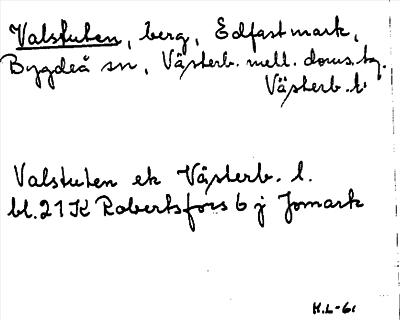 Valstuten, berg, Edfastmark,
Bygdeå sn, Västerb. mell. doms.tg.
Västerb. l.
Valstuten ek Västerb. l.
bl. 21K Robertsfors 6 j Jomark
H.L-61